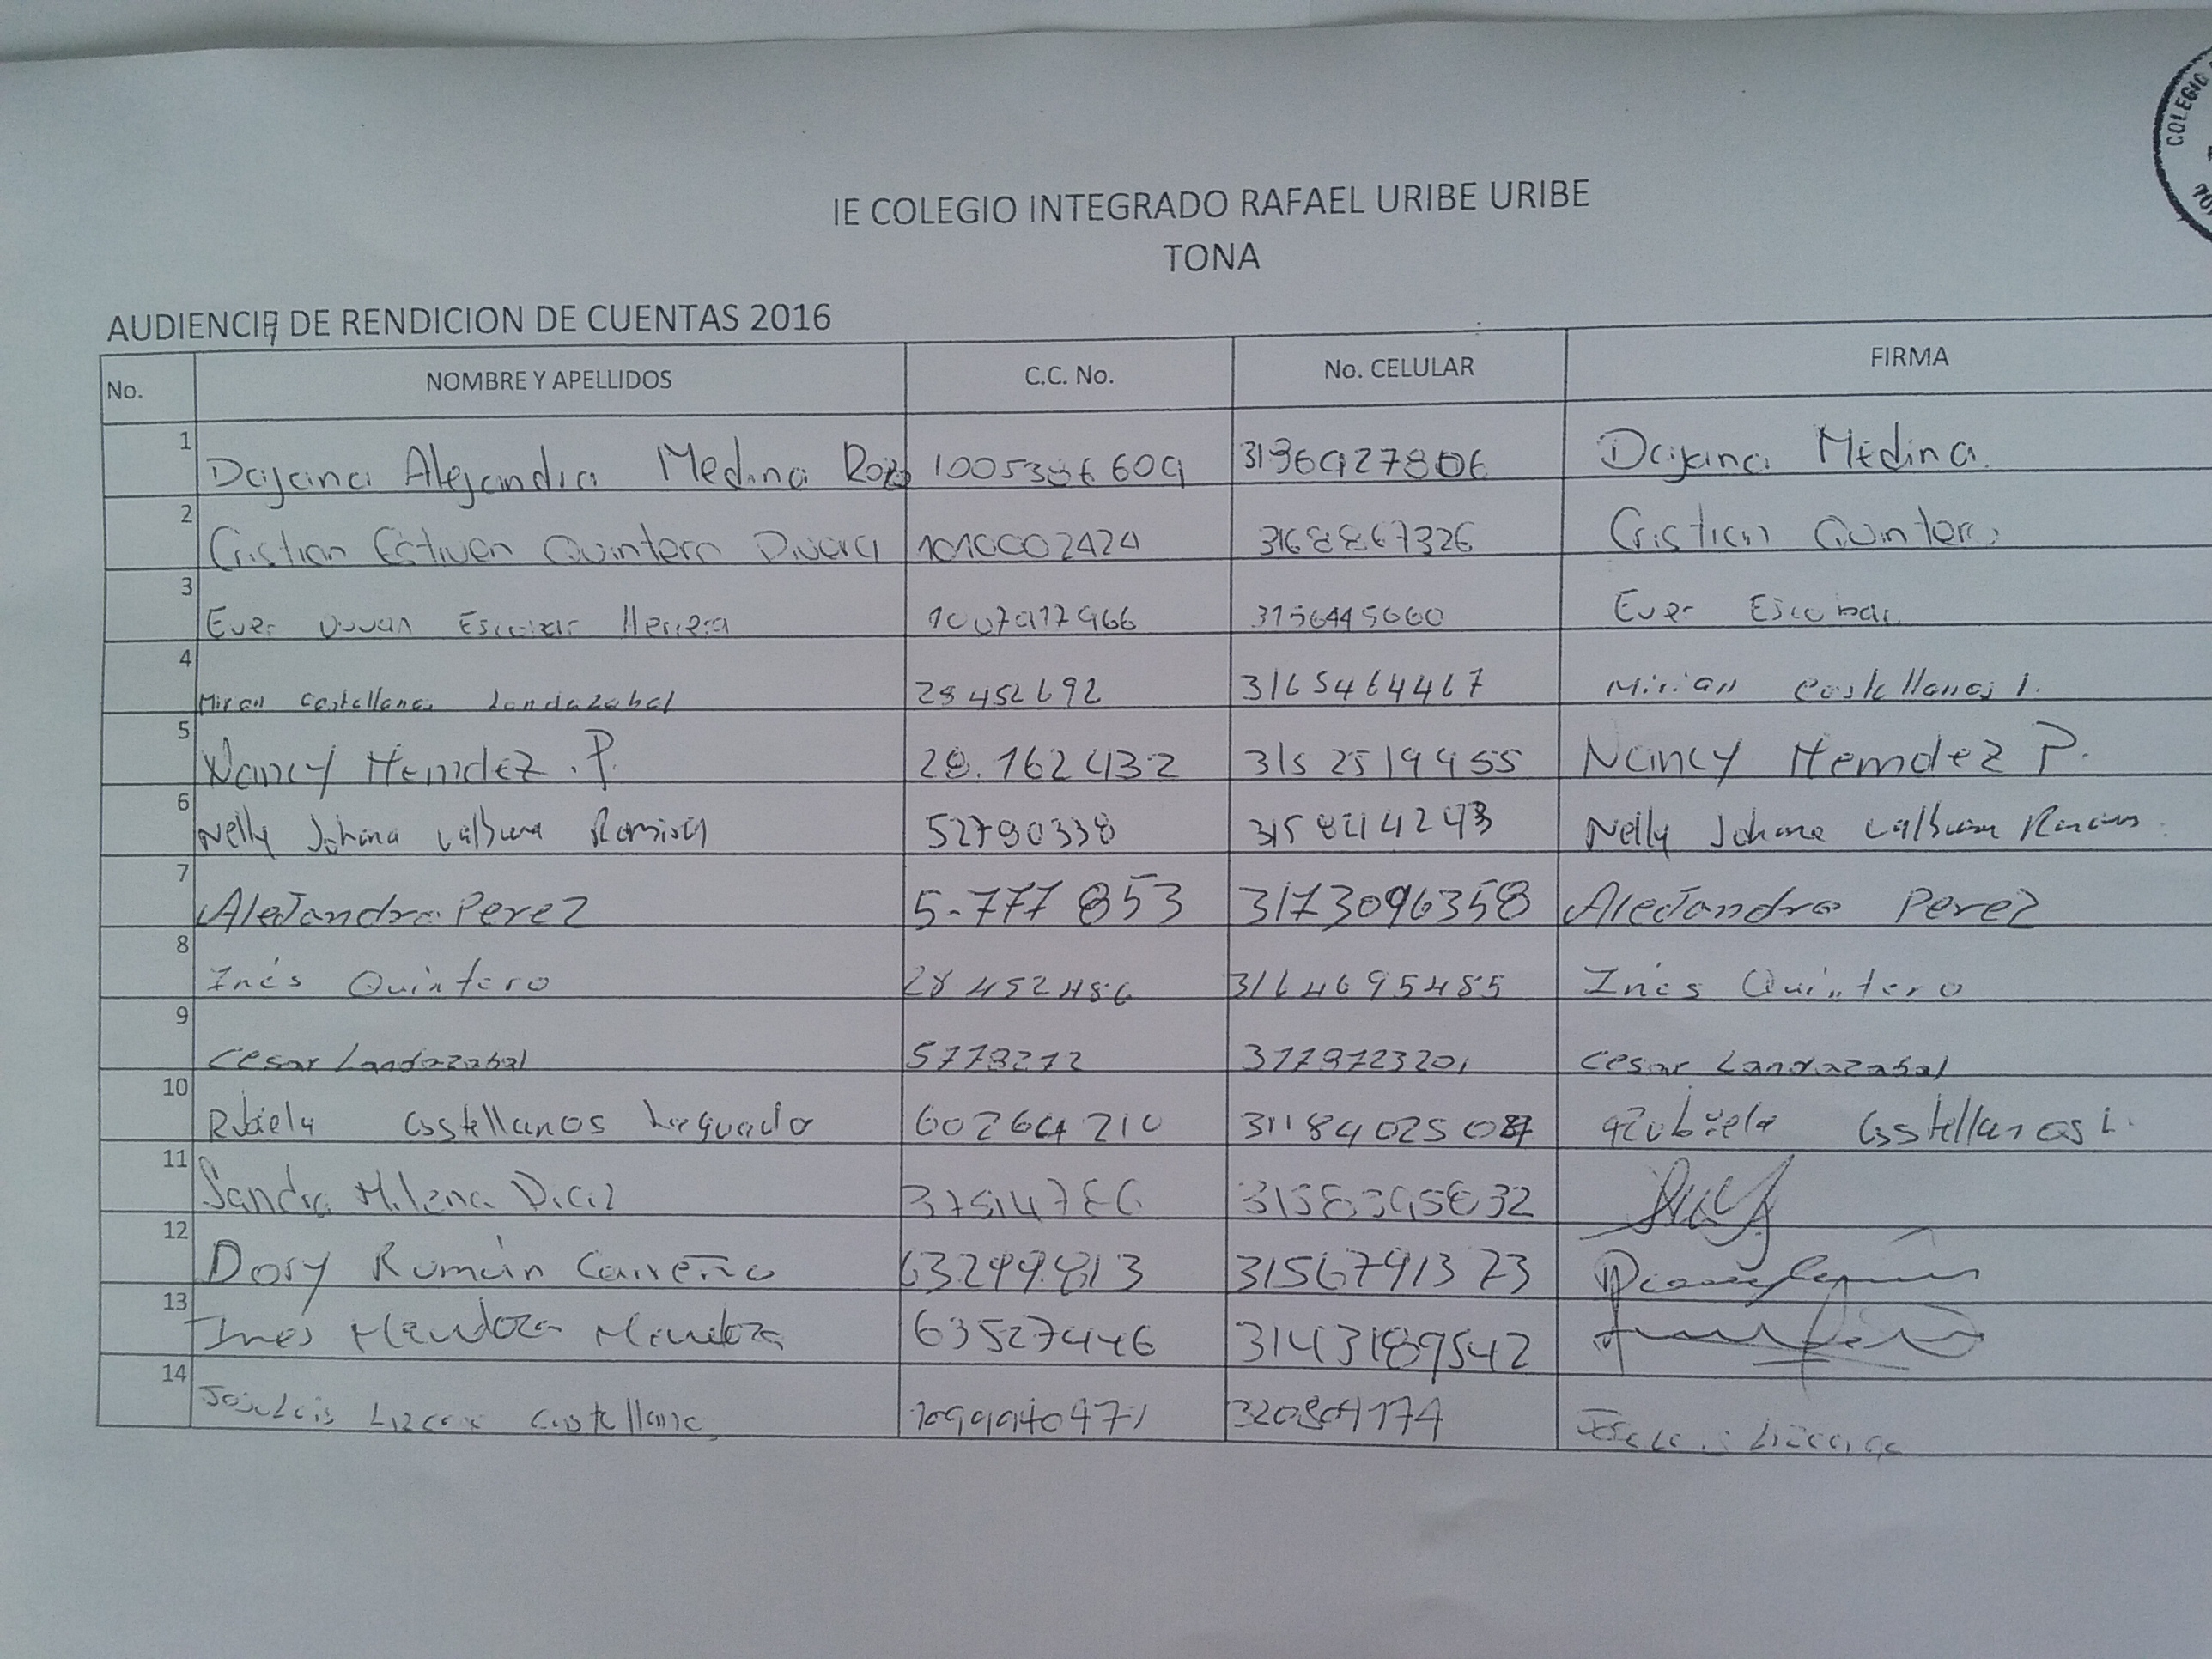 COLEGIO
IE COLEGIO INTEGRADO RAFAEL URIBE URIBE
TONA
AUDIENCIA DE RENDICION DE CUENTAS 2016
No. NOMBRE Y APELLIDOS C.C. No. No. CELULAR FIRMA
1 Dajana Alejandra Medina Rozo 1005386609 3136927806 Dajana Medina
2 Cristian Estiven Quintero 1010002424 3168867326 Cristian Quintero
3 Ever Escobar Herrera 1007917966 3156445660 Ever Escobar
4 Mirian Castellanos Landazabal 28452692 3165464467 Mirian Castellanos l.
5 Nancy Herndez .P. 28.162432 3152519955 Nancy Herndez P.
6 Nelly Johana Valbuena 52790338 Nelly Johana Valbuena
7 AleJandro Perez 5-777 853 3173096358 AleJandro Perez
8 Inés Quintero 28 452486 3164695485 Inés Quintero
9 Cesar Landazabal 5778212 Cesar Landazabal
10 Rubiela Castellanos Laguado 60264210 Rubiela Castellanos L.
11 Sandra Milena Diaz 37514786 3158395832
12 Dory Román Carreño 63299.813 3156791373
13 Ines Mendoza Mendoza 63527446 3143189542
14 Jose Luis Lizcano Castellano 1099940471